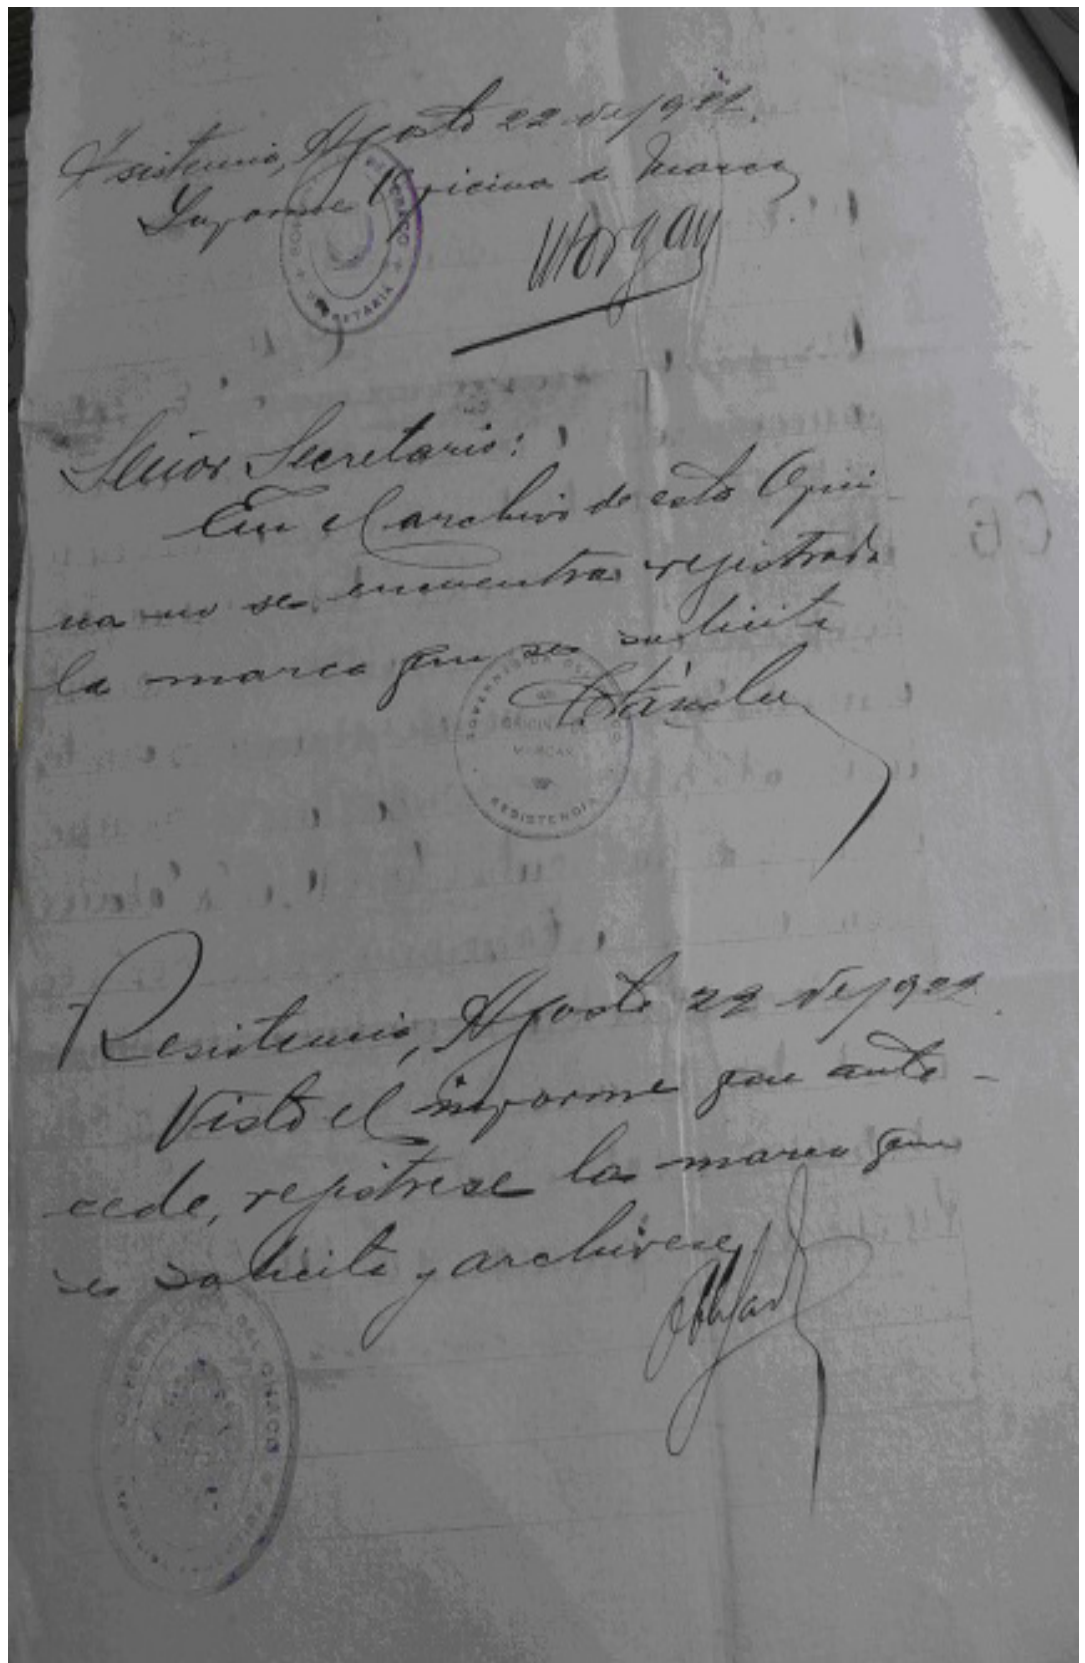 Resistencia, Agosto 22 de 1921.
Informe Oficina de Marcas
Morgan
GOBERNACION DEL CHACO
SECRETARIA
Señor Secretario:
En el archivo de esta Ofici-
na no se encuentra rejistrada
la marca que se solicita
GOBERNACION DEL CHACO
OFICINA DE
MARCAS
RESISTENCIA
Resistencia, Agosto 22 de 1921.
Visto el informe que ante-
cede, rejistrese la marca que
se solicita y archivese
GOBERNACION DEL CHACO